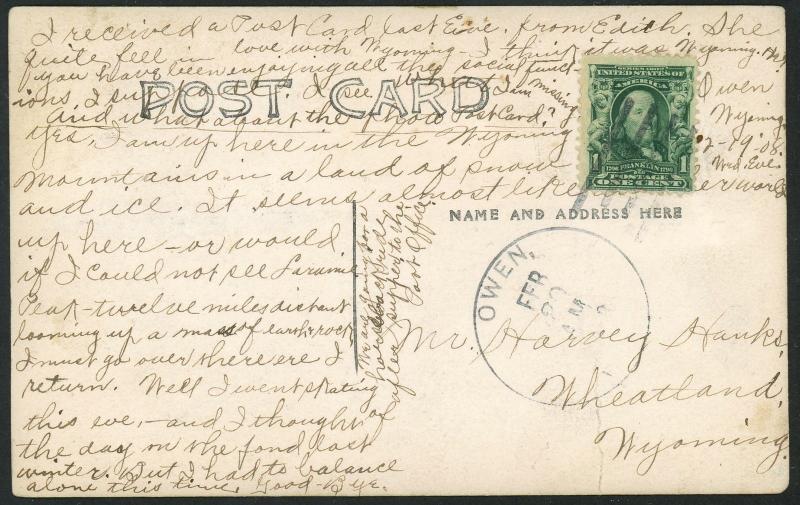 I received a Post Card last Eve, from Edith. She
quite fell in love with Wyoming - I think it was Wyoming. Hey
if you have been enjoying all the social funct-
ions, I suppose. I see I am missing.
And what about the Photo Post Card?
POST CARD
Owen
Wyoming
2-19-08.
Wed. Eve.
Yes, I am up here in the Wyoming
Mountains in a land of snow
and ice. It seems almost like another world
up here - or would
if I could not see Laramie
Peak - twelve miles distant
looming up a mass of earth & rock
I must go over there ere I
return. Well I went skating
this eve, - and I thought of
the day on the pond last
winter. But I had to balance
alone this time. Good-Bye.
We are going for a
horseback ride
after supper to the
Post Office.
SERIES 1902
UNITED STATES OF AMERICA
1706 FRANKLIN 1790
1 POSTAGE 1
ONE CENT
NAME AND ADDRESS HERE
OWEN,
FEB
20
AM
Mr. Harvey Hanks,
Wheatland,
Wyoming.